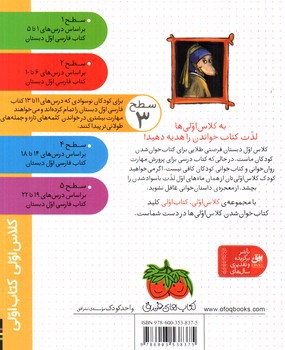 سطح ۱
براساس درس‌های ۱ تا ۵
کتاب فارسی اوّل دبستان
سطح ۲
براساس درس‌های ۶ تا ۱۰
کتاب فارسی اوّل دبستان
سطح
۳
برای کودکان نوسوادی که درس‌های ۱۱ تا ۱۳ کتاب
فارسی اوّل دبستان را تمام کرده‌اند و می‌خواهند
مهارت بیشتری در خواندن کلمه‌های تازه و جمله‌های
طولانی‌تر پیدا کنند.
سطح ۴
براساس درس‌های ۱۴ تا ۱۸
کتاب فارسی اوّل دبستان
سطح ۵
براساس درس‌های ۱۹ تا ۲۴
کتاب فارسی اوّل دبستان
کلاس اوّلی کتاب اوّلی
به کلاس اوّلی‌ها
لذّت کتاب خواندن را هدیه دهید!
کلاس اوّل دبستان فرصتی طلایی برای کتاب‌خوان‌شدن
کودکان ماست. در حالی که کتاب درسی برای پرورش مهارت
روان‌خوانی و کتاب‌خوانی کودکان کافی نیست. اگر می‌خواهید
کودک کلاس اوّلی‌تان از همان ماه‌های اوّل لذّت باسواد شدن را
بچشد، از معجزه‌ی داستان‌خوانی غافل نشوید.
با مجموعه‌ی کلاس اوّلی، کتاب اوّلی کلید
کتاب‌خوان شدن کلاس اوّلی‌ها در دست شماست.
ناشر
برگزیده
سال‌های
افق
واحد کودک
www.ofoqbooks.com
ISBN 978-600-353-837-5
9 786003 538375